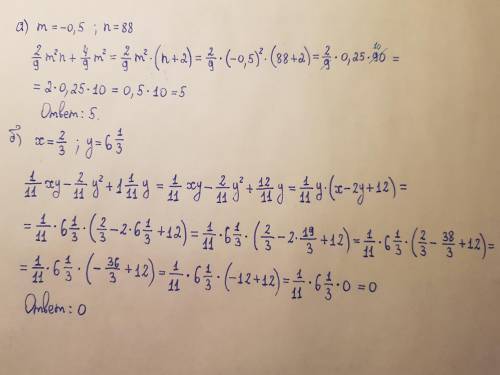 а) m=-0,5 ; n=88
2/9 m²n + 4/9 m² = 2/9 m²·(n+2) = 2/9·(-0,5)²·(88+2) = 2/9·0,25·90 10 =
= 2·0,25·10 = 0,5·10 = 5
Ответ: 5.
б) x = 2/3 ; y = 6 1/3
1/11 xy - 2/11 y² + 1 1/11 y = 1/11 xy - 2/11 y² + 12/11 y = 1/11 y·(x-2y+12) =
= 1/11·6 1/3·(2/3 - 2·6 1/3 + 12) = 1/11·6 1/3·(2/3 - 2·19/3 + 12) = 1/11·6 1/3·(2/3 - 38/3 + 12) =
= 1/11·6 1/3·(-36/3 + 12) = 1/11·6 1/3·(-12+12) = 1/11·6 1/3·0 = 0
Ответ: 0